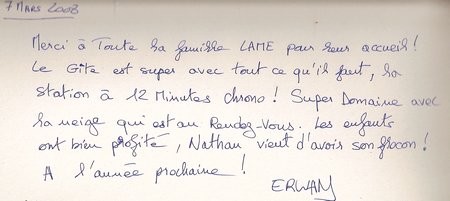 7 MARS 2008
Merci à Toute la famille LAME pour leur accueil !
Le Gîte est super avec tout ce qu'il faut, la
station à 12 Minutes chrono ! Super Domaine avec
la neige qui est au Rendez-Vous. Les enfants
ont bien profité, Nathan vient d'avois son flocon !
A l'année prochaine !
ERWAN